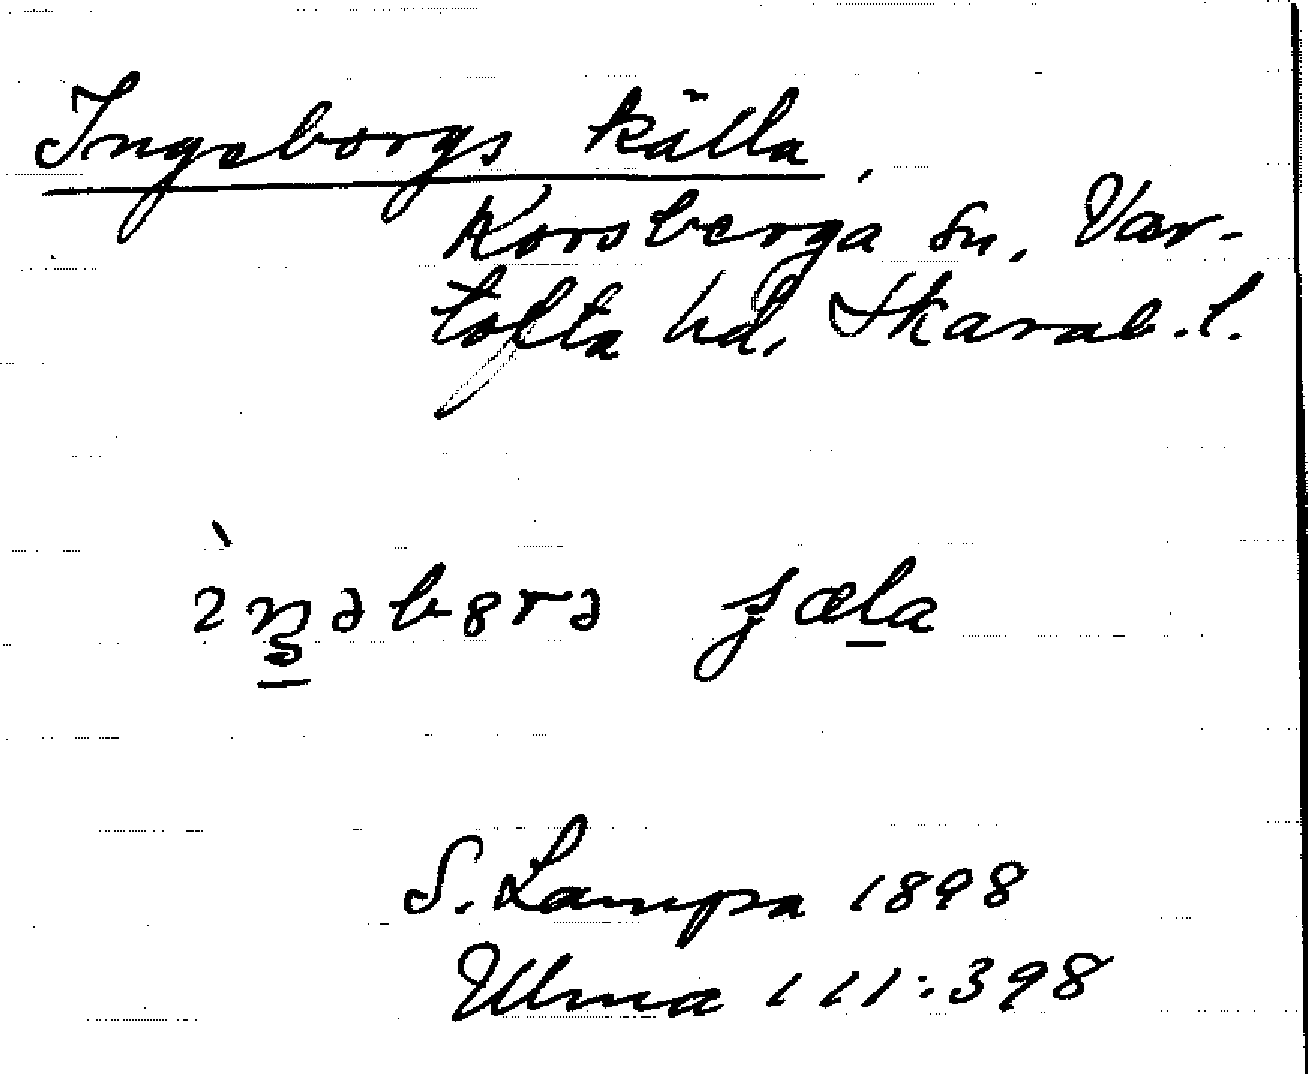 Ingeborgs källa,
Korsberga sn, Var-
tofta hd, Skarab. l.
S. Lampa 1898
Ulma 111:398